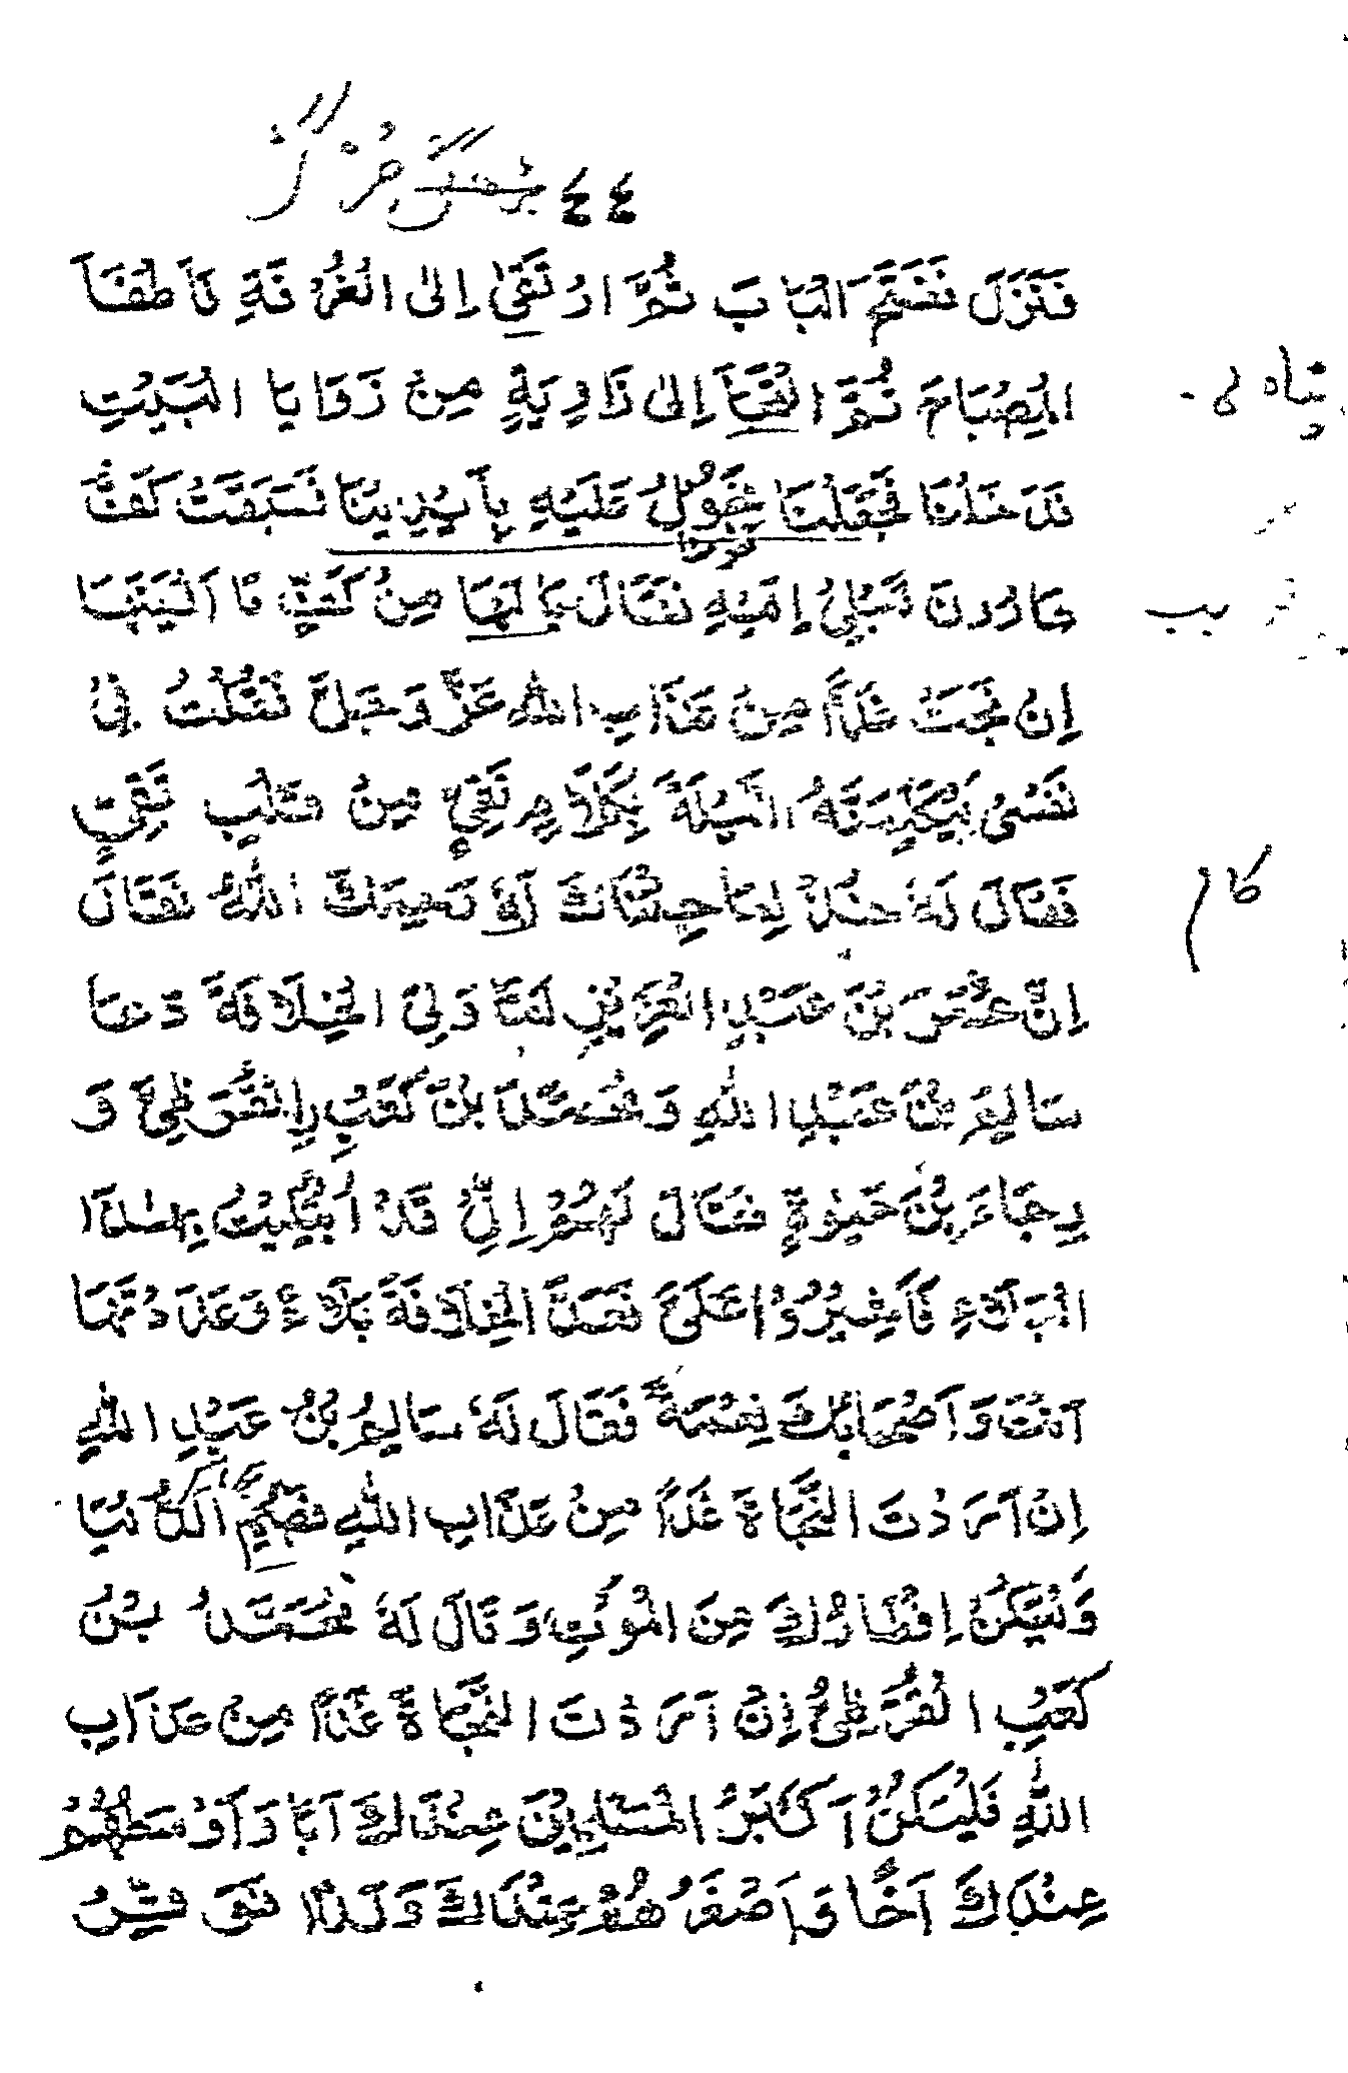 ٤٤
فَنَزَلَ فَفَتَحَ الْبَابَ ثُمَّ ارْتَقٰى اِلَى الْغُرْفَةِ فَاَطْفَاَ
الْمِصْبَاحَ ثُمَّ الْتَجَاَ اِلٰى زَاوِيَةٍ مِنْ زَوَايَا الْبَيْتِ
فَدَخَلْنَا فَجَعَلْنَا نَجُوْلُ عَلَيْهِ بِاَيْدِيْنَا فَسَبَقَتْ كَفُّ
هَارُوْنَ قَبْلِىْ اِلَيْهِ فَقَالَ يَا لَهَا مِنْ كَفٍّ مَا اَلْيَنَهَا
اِنْ نَجَتْ غَدًا مِنْ عَذَابِ اللهِ عَزَّ وَجَلَّ فَقُلْتُ فِىْ
نَفْسِىْ لَيُكَلِّمَنَّهُ اللَّيْلَةَ بِكَلَامٍ نَقِيٍّ مِنْ قَلْبٍ نَقِيٍّ
فَقَالَ لَهٗ خُذْ لِمَا جِئْنَاكَ لَهٗ رَحِمَكَ اللهُ فَقَالَ
اِنَّ عُمَرَ بْنَ عَبْدِ الْعَزِيْزِ لَمَّا وَلِىَ الْخِلَافَةَ دَعَا
سَالِمَ بْنَ عَبْدِ اللهِ وَمُحَمَّدَ بْنَ كَعْبِ ِالْقُرَظِىَّ وَ
رِجَاءَ بْنَ حَيٰوةٍ فَقَالَ لَهُمْ اِنِّىْ قَدْ اُبْتُلِيْتُ بِهٰذَا
الْبَلَاءِ فَاَشِيْرُوْا عَلَىَّ فَعَدَّ الْخِلَافَةَ بَلَاءً وَعَدَدْتَّهَا
اَنْتَ وَاَصْحَابُكَ نِعْمَةً فَقَالَ لَهٗ سَالِمُ بْنُ عَبْدِ اللهِ
اِنْ اَرَدْتَ النَّجَاةَ غَدًا مِنْ عَذَابِ اللهِ فَصُمِ الدُّنْيَا
وَلْيَكُنْ اِفْطَارُكَ مِنَ الْمَوْتِ وَقَالَ لَهٗ مُحَمَّدُ بْنُ
كَعْبِ الْقُرَظِىُّ اِنْ اَرَدْتَ النَّجَاةَ غَدًا مِنْ عَذَابِ
اللهِ فَلْيَكُنْ اَكْبَرُ الْمُسْلِمِيْنَ عِنْدَكَ اَبًا وَاَوْسَطُهُمْ
عِنْدَكَ اَخًا وَاَصْغَرُهُمْ عِنْدَكَ وَلَدًا فَوَقِّرْ